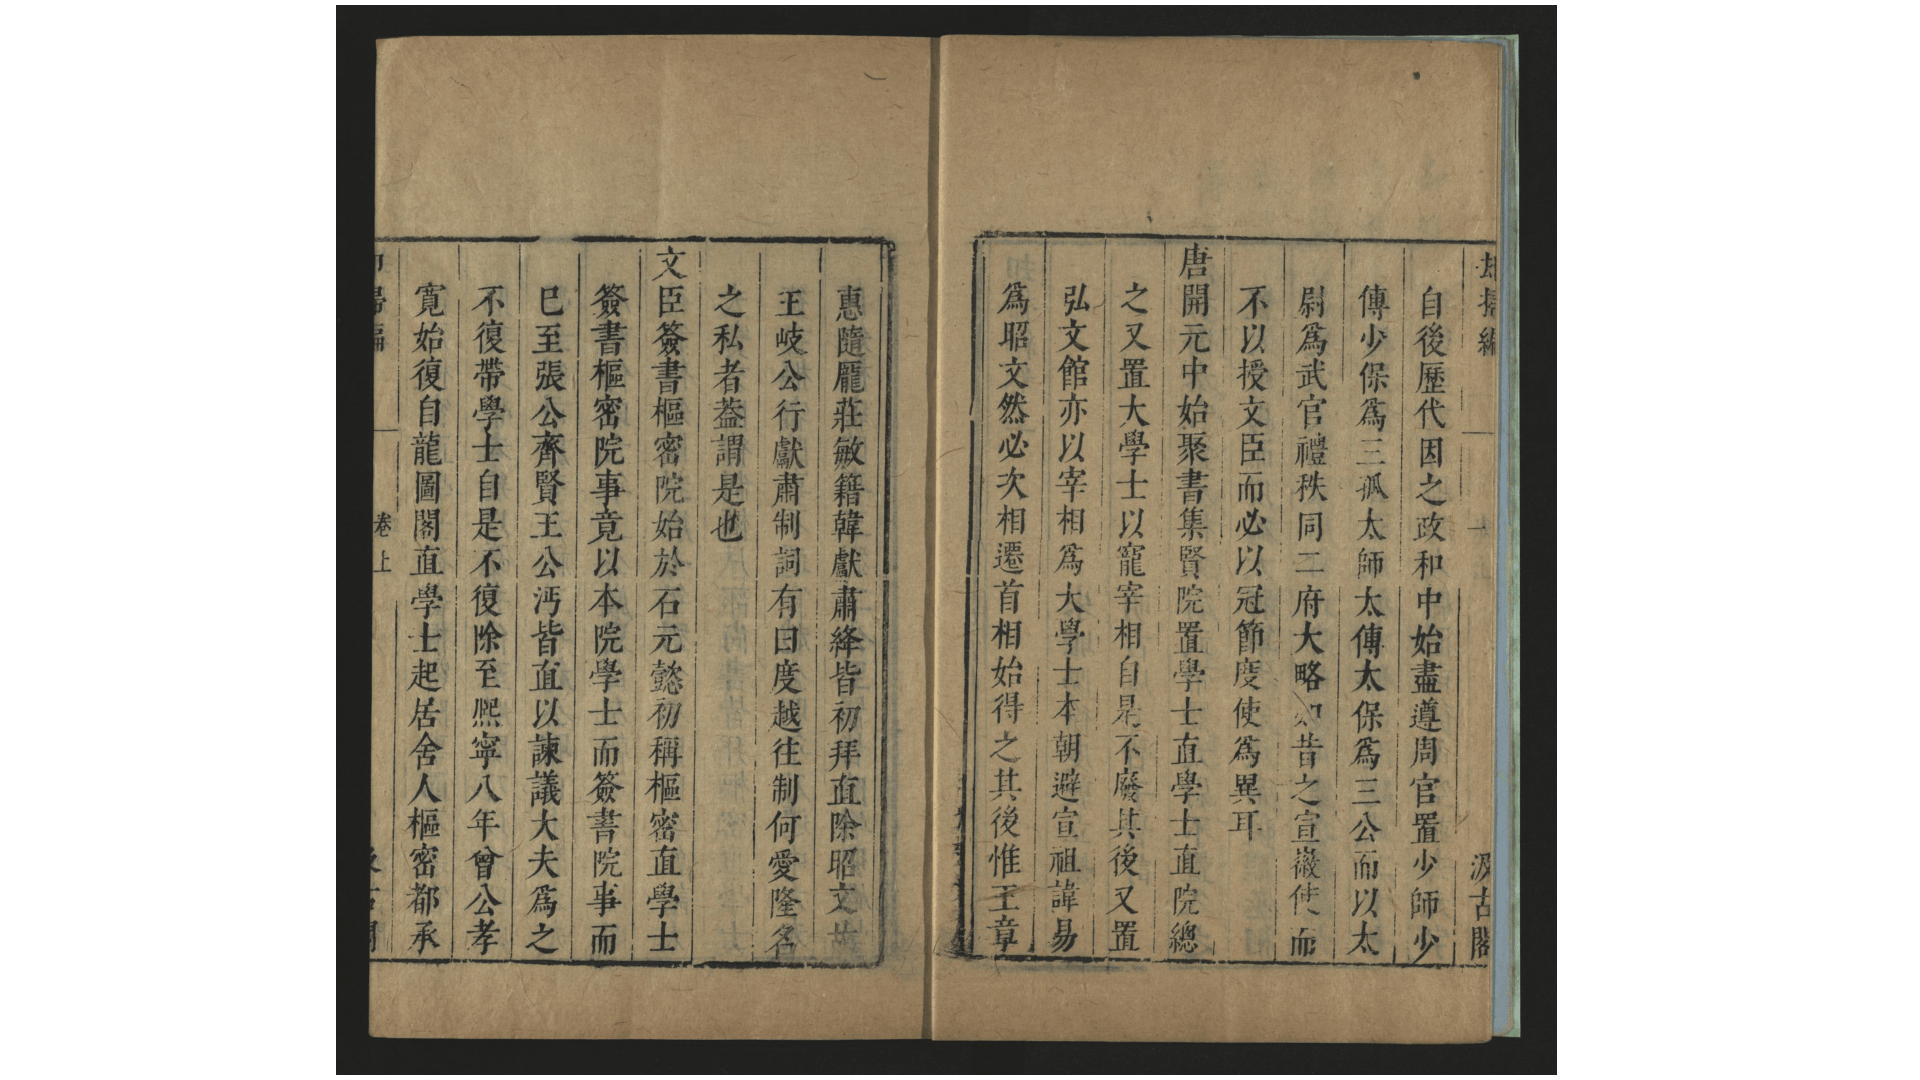 却掃編
汲古閣
自後歷代因之政和中始盡遵周官置少師少
傅少保爲三孤太師太傅太保爲三公而以太
尉爲武官禮秩同二府大略如昔之宣徽使而
不以授文臣而必以冠節度使爲異耳
唐開元中始聚書集賢院置學士直學士直院總
之又置大學士以寵宰相自是不廢其後又置
弘文館亦以宰相爲大學士本朝避宣祖諱易
爲昭文然必次相遷首相始得之其後惟王章
惠隨龐莊敏籍韓獻肅絳皆初拜直除昭文故
王岐公行獻肅制詞有曰度越往制何愛隆名
之私者蓋謂是也
文臣簽書樞密院始於石元懿初稱樞密直學士
簽書樞密院事竟以本院學士而簽書院事而
巳至張公齊賢王公沔皆直以諫議大夫爲之
不復帶學士自是不復除至熙寧八年曾公孝
寬始復自龍圖閣直學士起居舍人樞密都承
卷上